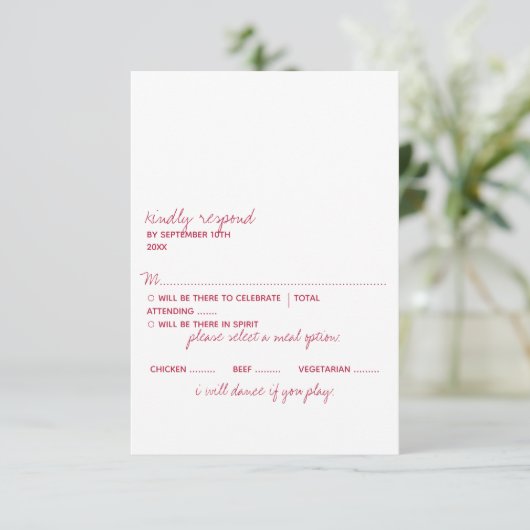 kindly respond
BY SEPTEMBER 10TH
20XX
M..........................................................
O WILL BE THERE TO CELEBRATE | TOTAL
ATTENDING .......
O WILL BE THERE IN SPIRIT
please select a meal option:
CHICKEN ......... BEEF ......... VEGETARIAN .........
i will dance if you play: